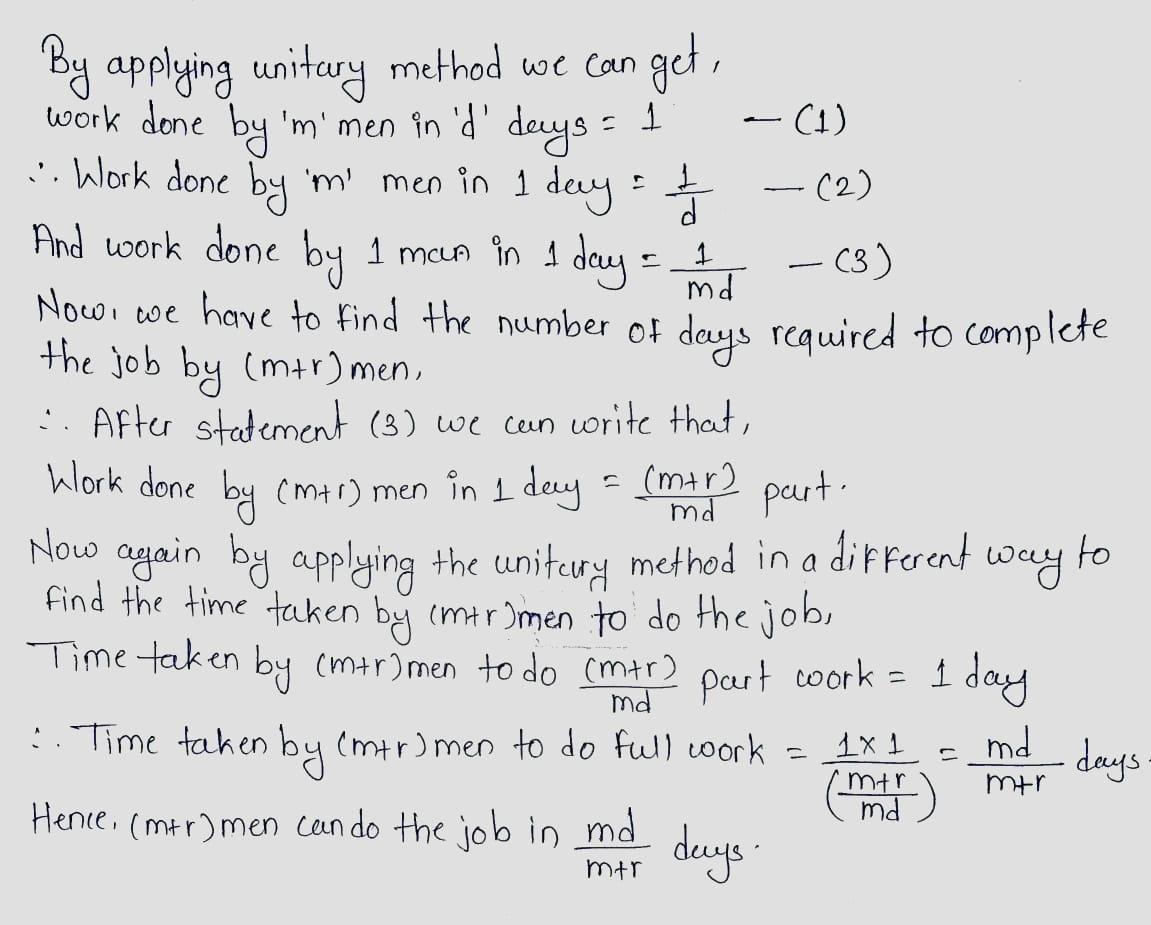 By applying unitary method we can get,
work done by 'm' men in 'd' days = 1 — (1)
∴ Work done by 'm' men in 1 day = 1/d — (2)
And work done by 1 man in 1 day = 1/md — (3)
Now, we have to find the number of days required to complete
the job by (m+r) men,
∴ After statement (3) we can write that,
Work done by (m+r) men in 1 day = (m+r)/md part.
Now again by applying the unitary method in a different way to
find the time taken by (m+r) men to do the job,
Time taken by (m+r) men to do (m+r)/md part work = 1 day
∴ Time taken by (m+r) men to do full work = 1×1/(m+r/md) = md/m+r days.
Hence, (m+r) men can do the job in md/m+r days.